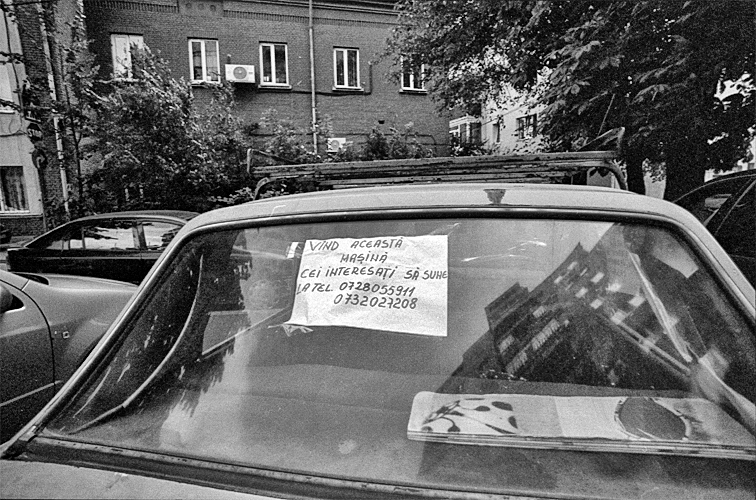 VÎND ACEASTĂ
MAȘINĂ
CEI INTERESAȚI SĂ SUNE
LA TEL 0728055911
0732027208